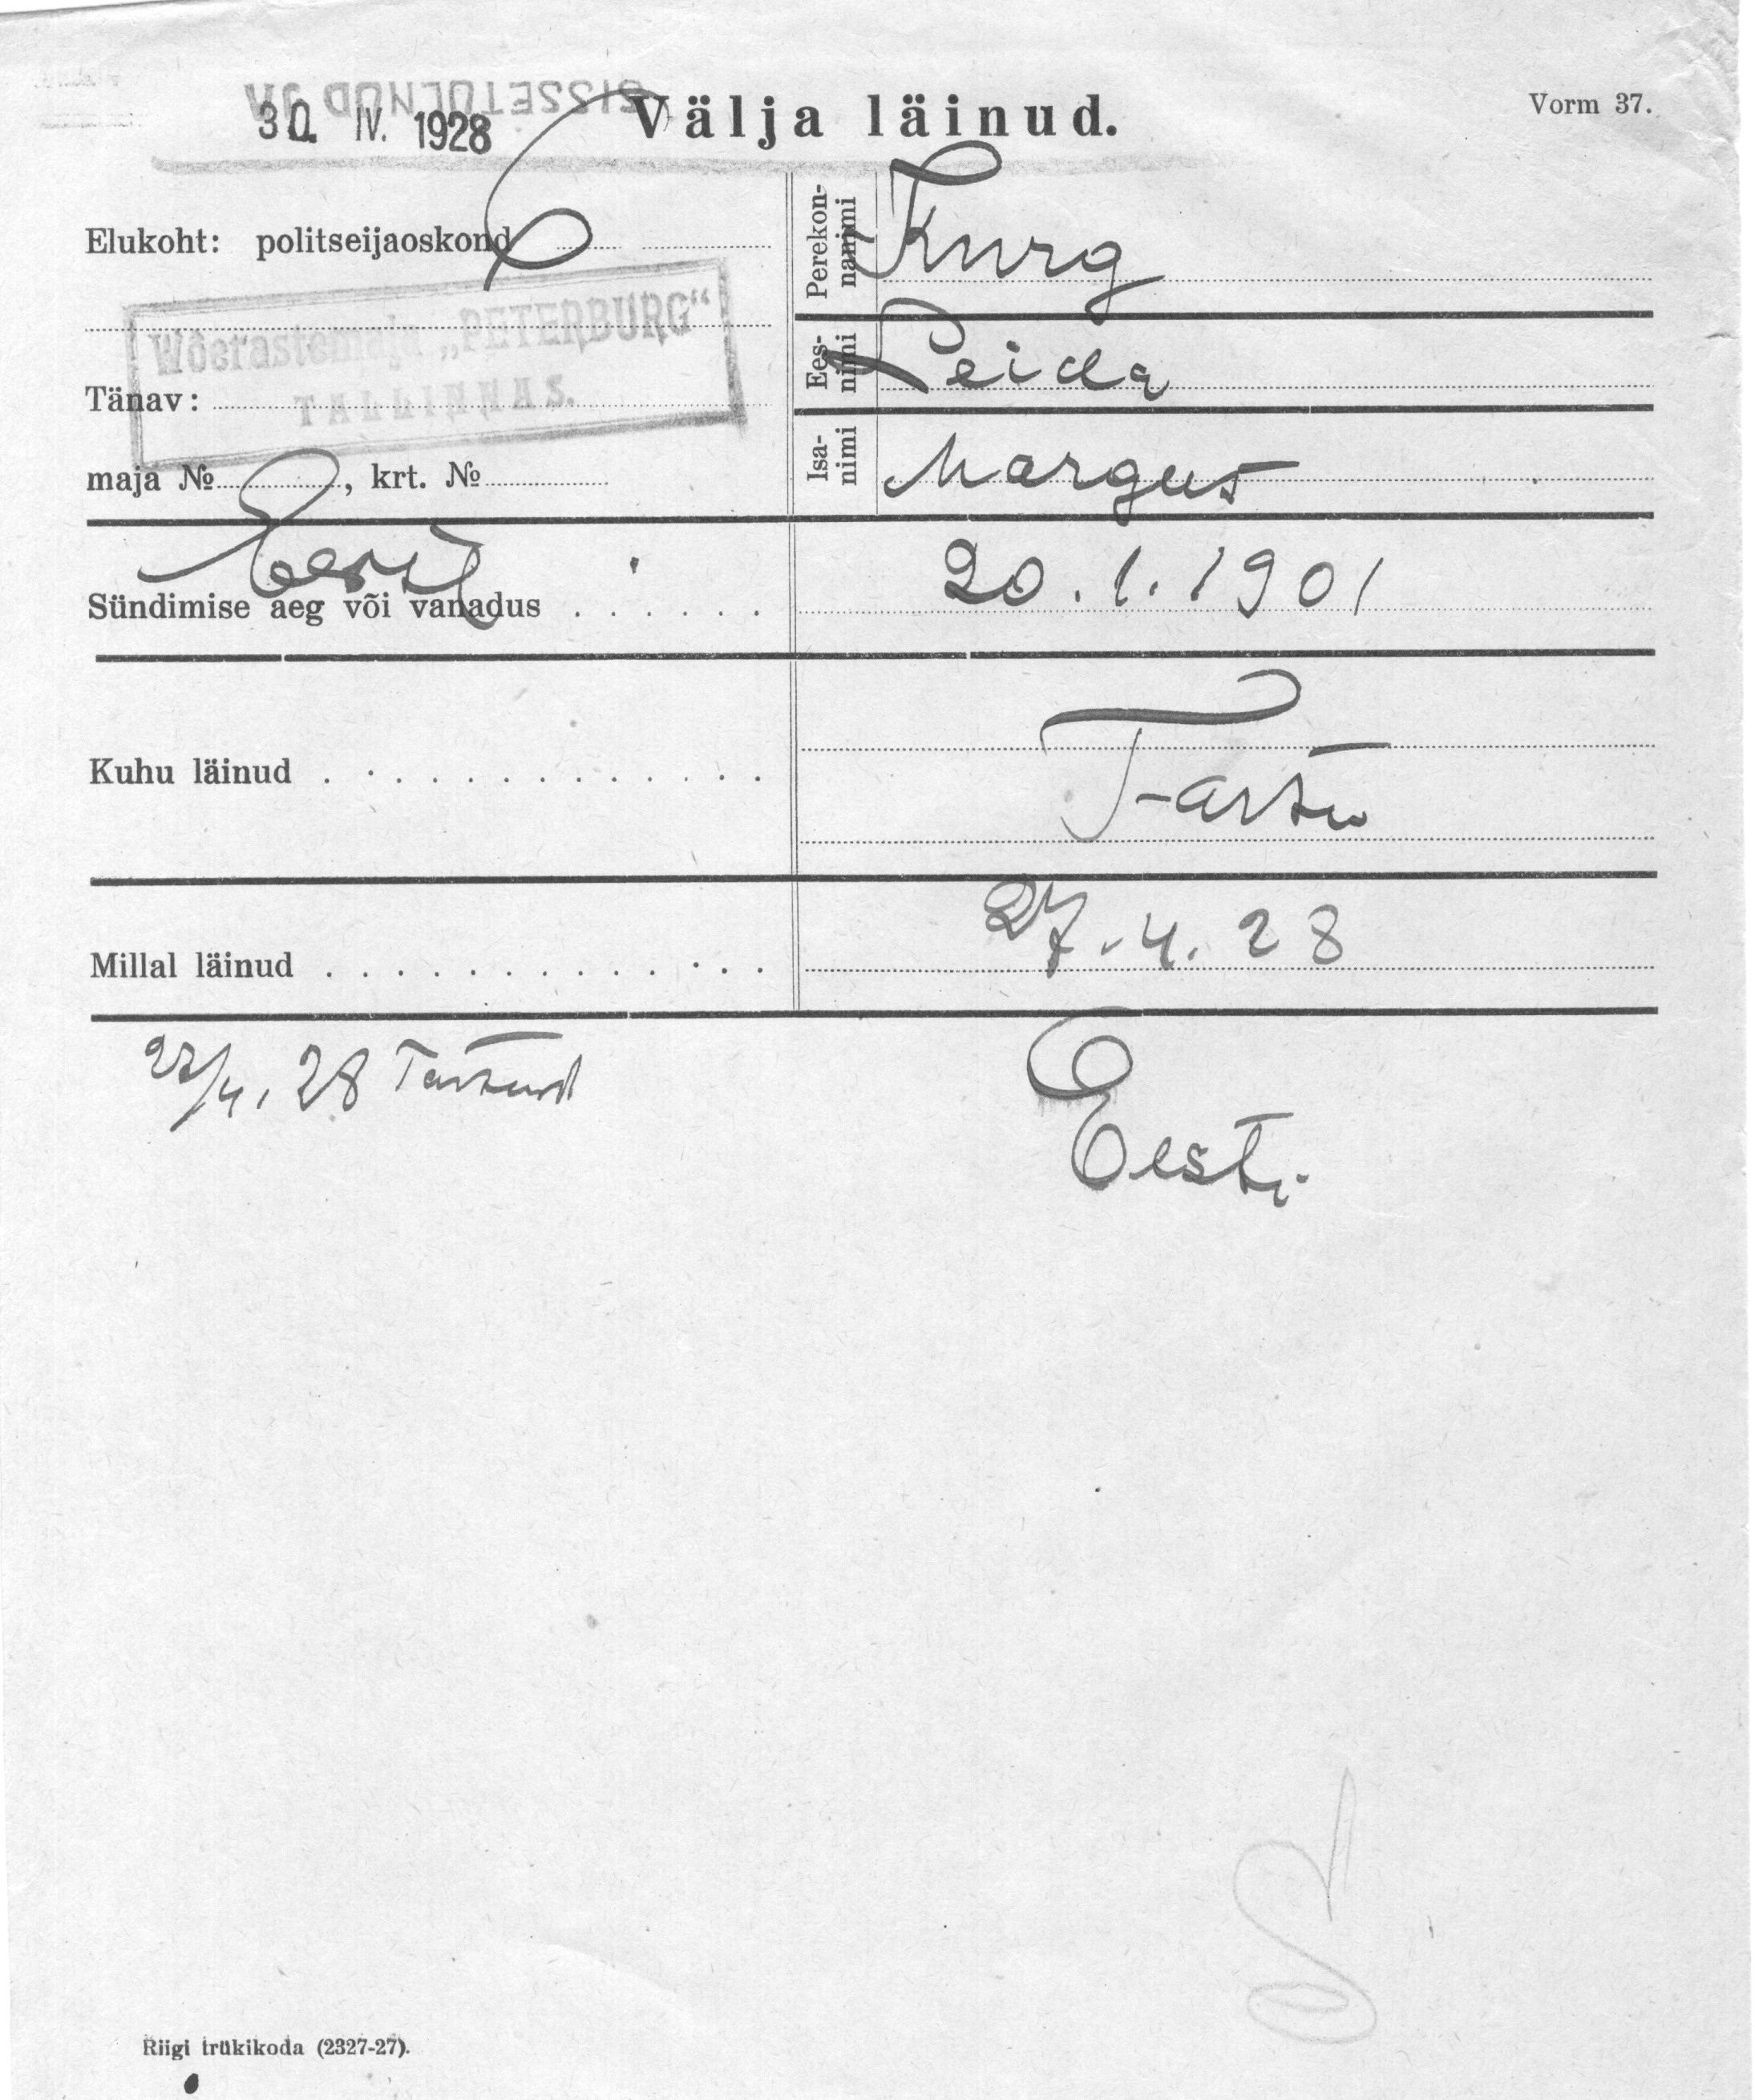 SISSETULNUD JA
30. IV. 1928
Välja läinud.
Vorm 37.
Elukoht: politseijaoskond 6
Wõerastemaja „PETERBURG“
TALLINNAS.
Tänav:
maja № , krt. №
Perekon-
nanimi
Kurg
Ees-
nimi
Leida
Isa-
nimi
Margus
Eesti
Sündimise aeg või vanadus . . . . . . 20.1.1901
Kuhu läinud . . . . . . . . . . . . . Tartu
Millal läinud . . . . . . . . . . . . . 27.4.28
27/4. 28 Tartust
Eesti.
Riigi trükikoda (2327-27).